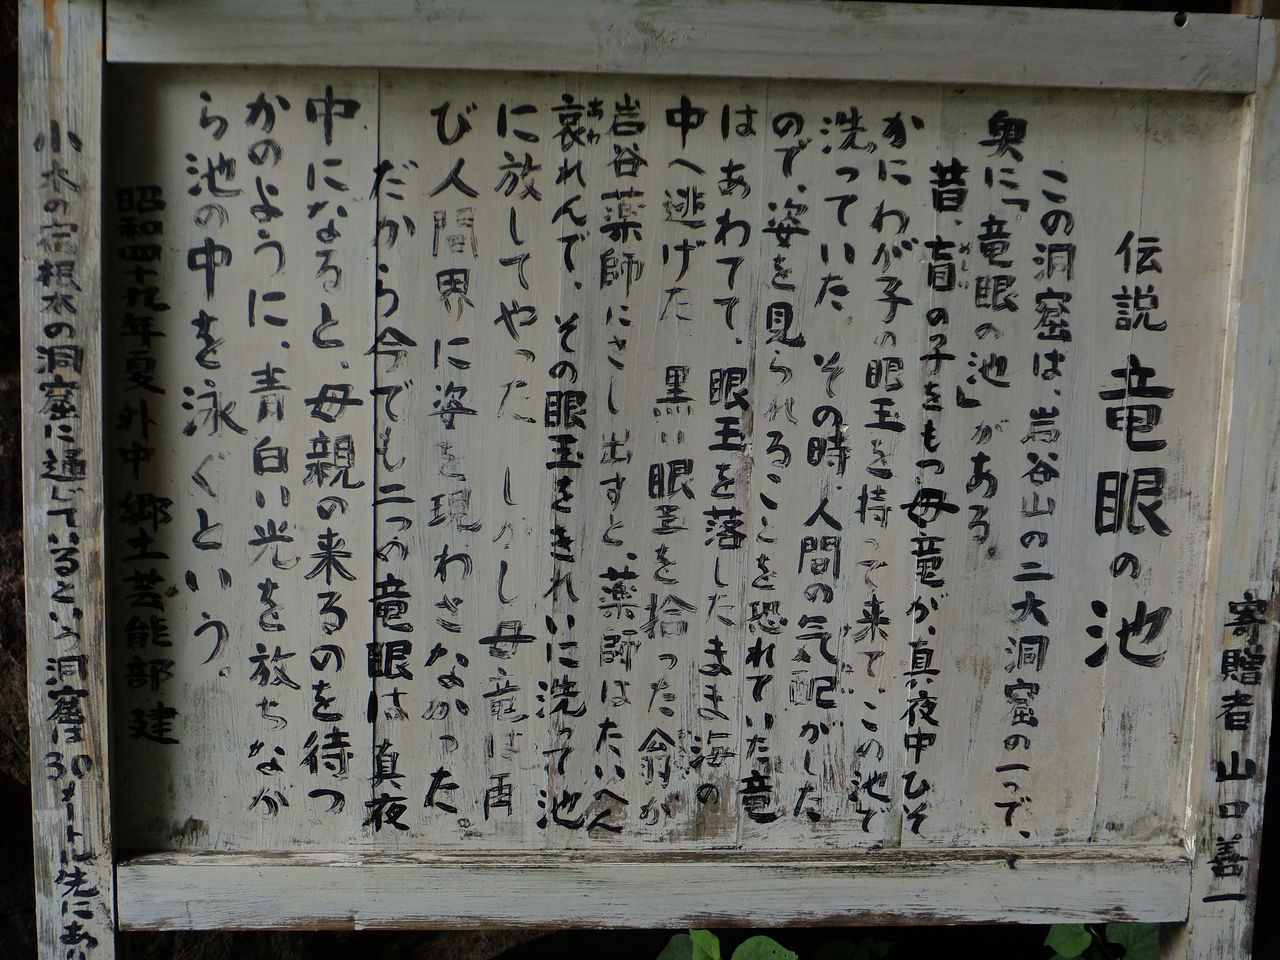 寄贈者 山口善一
伝説 竜眼の池
この洞窟は、岩谷山の二大洞窟の一つで、
奥に「竜眼の池」がある
昔、盲の子をもつ母竜が、真夜中ひそ
かにわが子の眼玉を持って来て、この池で
洗っていた その時、人間の気配がした
ので、姿を見られることを恐れていた竜
はあわてて、眼玉を落したまま海の
中へ逃げた 黒い眼玉を拾った翁が
岩谷薬師にさし出すと、薬師はたいへん
哀れんで、その眼玉をきれいに洗って池
に放してやった しかし母竜は再
び人間界に姿を現わさなかった。
だから今でも二つの竜眼は真夜
中になると、母親の来るのを待つ
かのように、青白い光を放ちなが
ら池の中を泳ぐという。
昭和四十九年夏 外中郷土芸能部建
小木の宿根木の洞窟に通じているという洞窟は30メートル先にあり